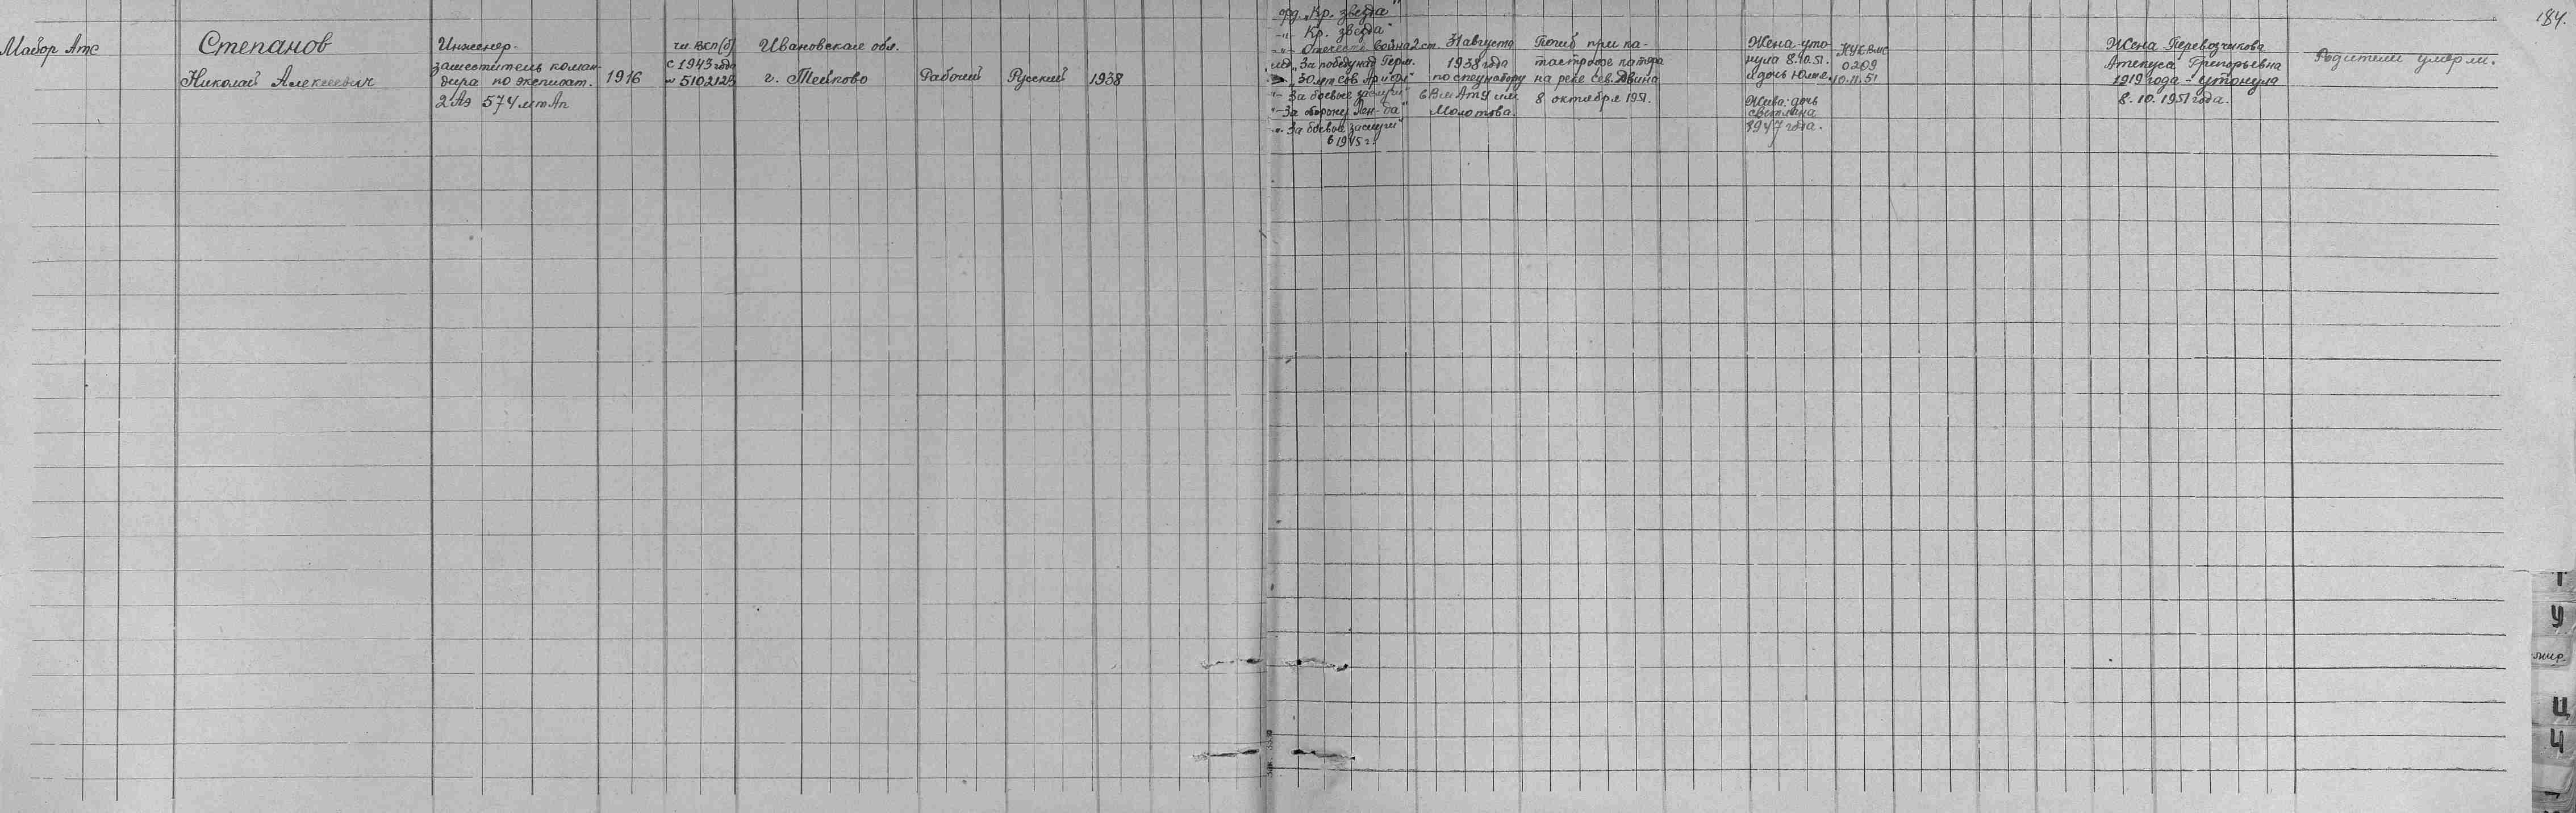 184
Майор Атс
Степанов
Николай Алексеевич
Инженер-
заместитель коман-
дира по эксплоат.
2 Аэ 574 мтАп
1916
чл. ВКП(б)
с 1943 года
№ 5102123
Ивановская обл.
г. Тейково
Рабочий
Русский
1938
орд. „Кр. звезда"
-"- Кр. звезда"
-"- Отечеств. война 2 ст.
мед. „За победу над Герм.
"30 лет сов. Ар и Фл"
"- За боевые заслуги"
"- За оборону Лен-да"
"- За боевые заслуги"
в 1945 г.
31 августа
1938 года
по спецнабору
в Вм Ату им
Молотова.
Погиб при ка-
тастрофе катера
на реке Сев. Двина
8 октября 1951.
Жена уто-
нула 8.10.51.
и дочь Юлия.
Жива: дочь
Светлана
1947 года.
НУК ВМС
0209
10.11.51
Жена Перевозчикова
Григорьевна
1919 года - утонула
8.10.1951 года.
Родители умерли.
Т
У
Ц
Ч